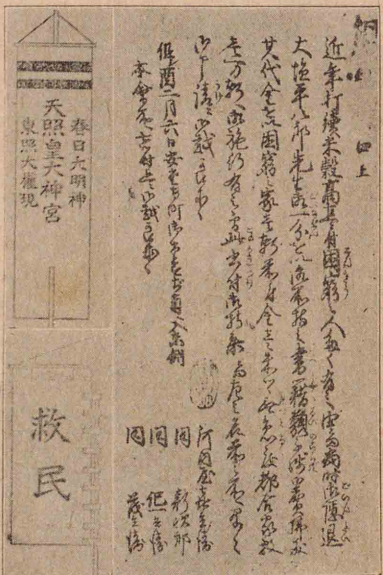 口上
近年打續米穀高直ニ付困窮之人多く有之由ニ而當時御隠退
大塩平八郎先生御一分を以御所持之書籍類不残御賣拂被成
其代金を以困窮之家壱軒前ニ付金壱朱ツヽ無急度都合家数
壱万軒へ御施行有之候間此書付御持参ニ而左之名前之所へ早々
御申請ニ御越可被成候
但酉二月六日安堂寺町御堂筋南へ入東側
本會所へ御越可被成候
河内屋喜兵衛
同 新次郎
同 記一兵衛
同 茂兵衛
春日大明神
天照皇大神宮
東照大権現
救民